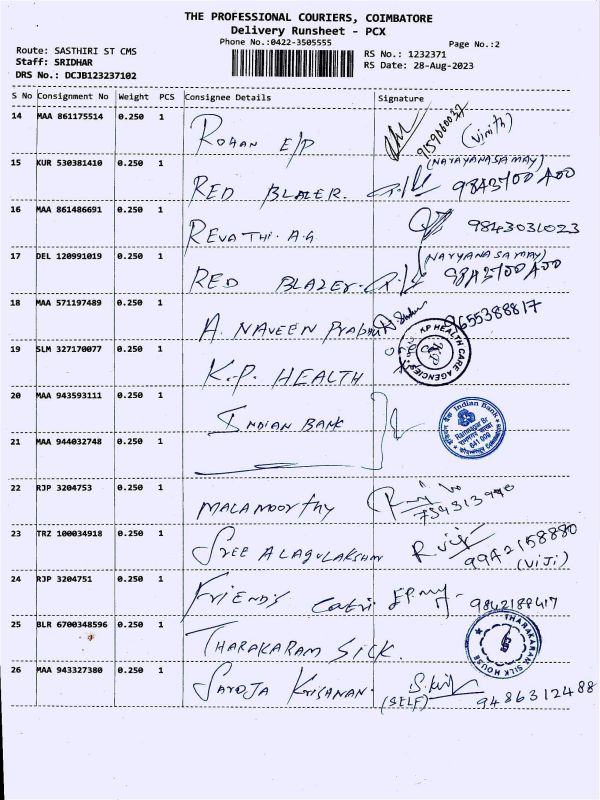 THE PROFESSIONAL COURIERS, COIMBATORE
Delivery Runsheet - PCX
Phone No.:0422-3505555
Page No.:2
Route: SASTHIRI ST CMS
RS No.: 1232371
Staff: SRIDHAR
RS Date: 28-Aug-2023
DRS No.: DCJB123237102
S No Consignment No Weight PCS Consignee Details Signature
14 MAA 861175514 0.250 1 ROHAN E/P 9159660037 (Vinith)
15 KUR 530381410 0.250 1 RED BLAZER. (NARAYANASAMAY) 9843700400
16 MAA 861486691 0.250 1 REVATHI. A.G 9843031023
17 DEL 120991019 0.250 1 RED BLAZER. (NARYANASAMAY) 9843700400
18 MAA 571197489 0.250 1 A. NAVEEN Prabhu 9655388817
19 SLM 327170077 0.250 1 K.P. HEALTH KP HEALTH CARE AGENCIES
20 MAA 943593111 0.250 1 INDIAN BANK Indian Bank Ramnagar Br 641 009
21 MAA 944032748 0.250 1
22 RJP 3204753 0.250 1 MALAMOORTHY
23 TRZ 100034918 0.250 1 SREE ALAGULAKSHMI R. Viji 9942158880 (ViJi)
24 RJP 3204751 0.250 1 FRIENDS 9842188417
25 BLR 6700348596 0.250 1 THARAKARAM SILK THARAKARAM SILK HOUSE
26 MAA 943327380 0.250 1 SAROJA KRISANAN. (SELF) 9486312488